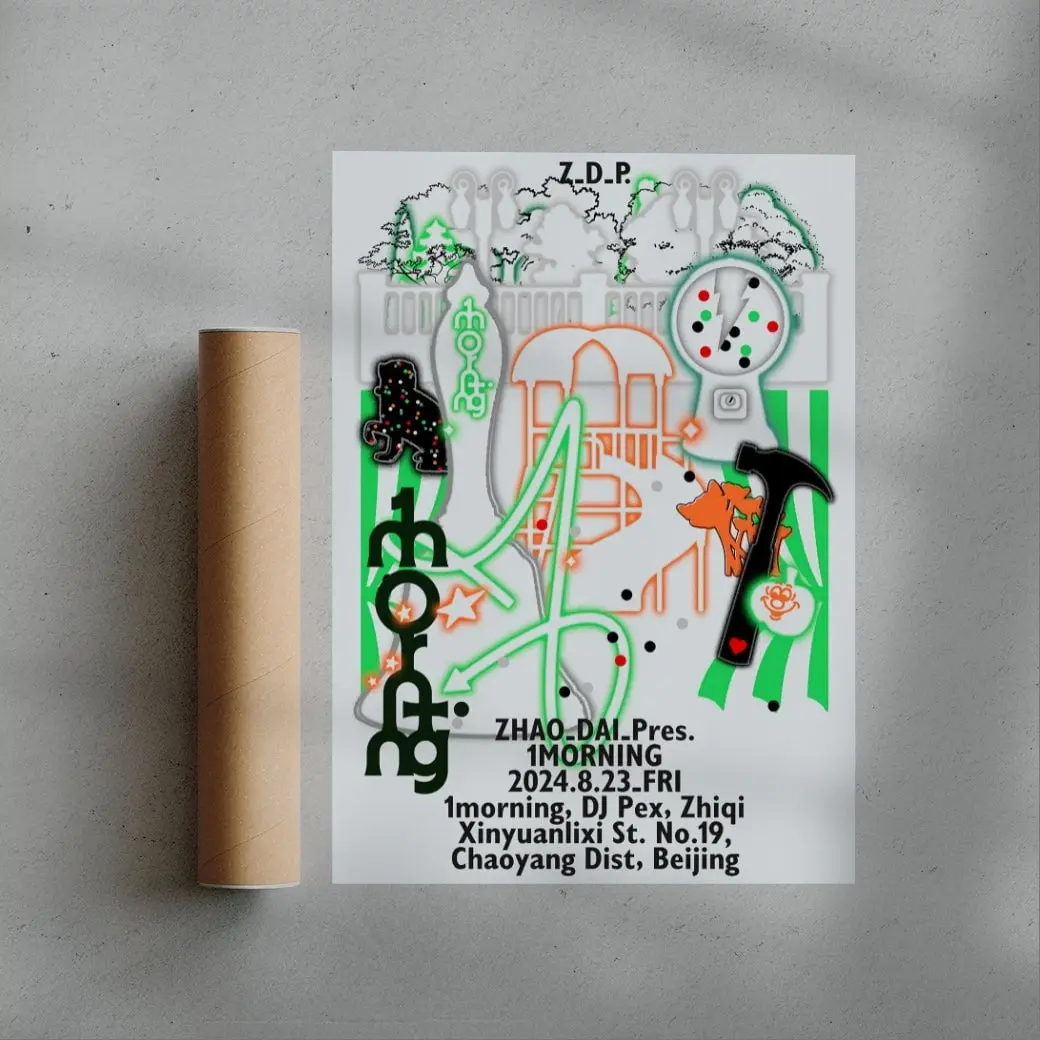 Z_D_P.
1morning
1morning
ZHAO_DAI_Pres.
1MORNING
2024.8.23_FRI
1morning, DJ Pex, Zhiqi
Xinyuanlixi St. No.19,
Chaoyang Dist, Beijing